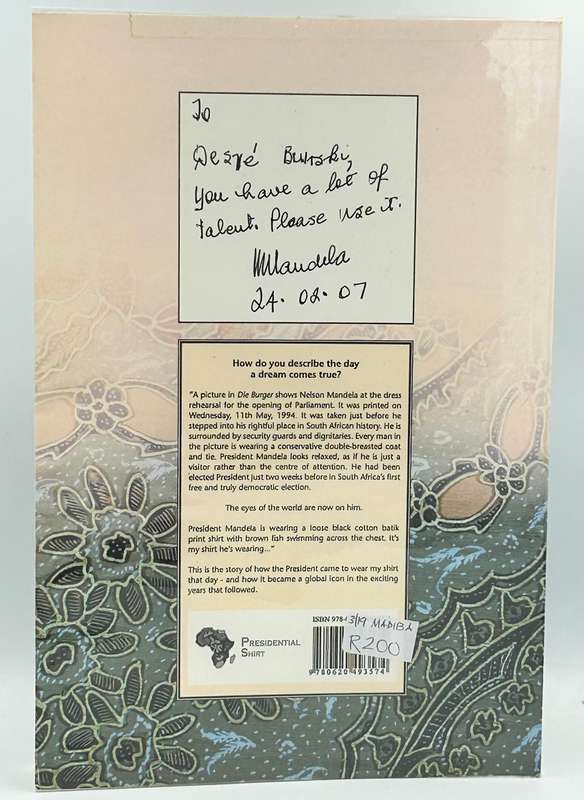 To
Desré Buirski,
You have a lot of
talent. Please use it.
NMandela
24.02.07
How do you describe the day
a dream comes true?
"A picture in Die Burger shows Nelson Mandela at the dress
rehearsal for the opening of Parliament. It was printed on
Wednesday, 11th May, 1994. It was taken just before he
stepped into his rightful place in South African history. He is
surrounded by security guards and dignitaries. Every man in
the picture is wearing a conservative double-breasted coat
and tie. President Mandela looks relaxed, as if he is just a
visitor rather than the centre of attention. He had been
elected President just two weeks before in South Africa's first
free and truly democratic election.
The eyes of the world are now on him.
President Mandela is wearing a loose black cotton batik
print shirt with brown fish swimming across the chest. It's
my shirt he's wearing..."
This is the story of how the President came to wear my shirt
that day - and how it became a global icon in the exciting
years that followed.
ISBN 978-
3/19 MADIBA
R200
PRESIDENTIAL
SHIRT
9 780620 493574